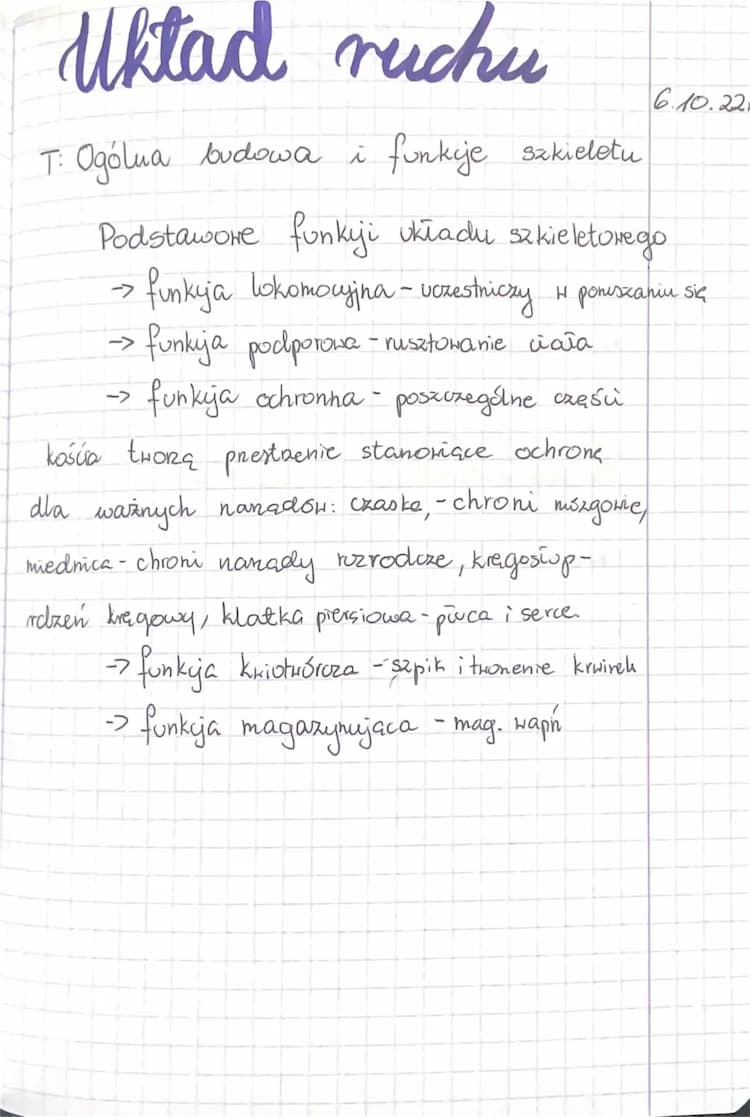 Układ ruchu
6.10.22r
T: Ogólna budowa i funkcje szkieletu
Podstawowe funkcji układu szkieletowego
-> funkcja lokomocyjna - uczestniczy w poruszaniu się
-> funkcja podporowa - rusztowanie ciała
-> funkcja ochronna - poszczególne części
kośća tworzą przestrzenie stanowiące ochronę
dla ważnych narządów: czaska, - chroni mózgowie,
miednica - chroni narządy rozrodcze, kręgosłup -
rdzeń kręgowy, klatka piersiowa - płuca i serce.
-> funkcja krwiotwórcza - szpik i tworzenie krwinek
-> funkcja magazynująca - mag. wapń